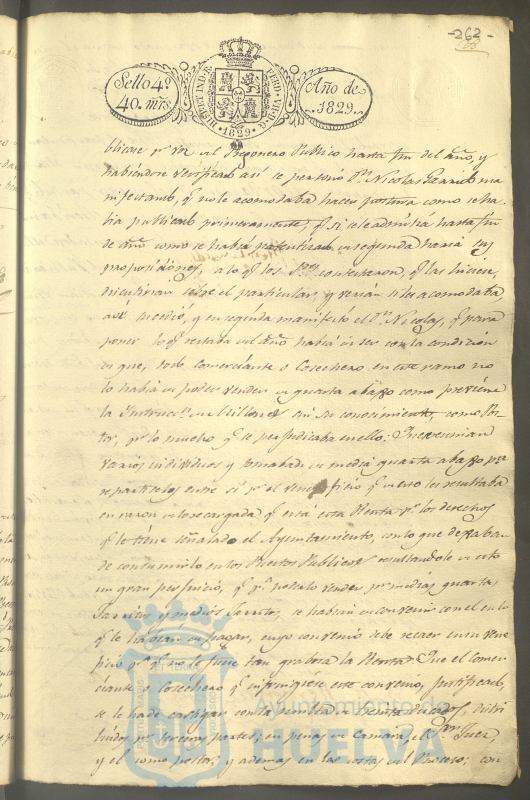 -262-
Sello 4º
40. mrs.
HISP. ET IND. R.
FERD. VII. D. G.
·1829·
Año de
1829.
blicase pr voz del Pregonero Publico hasta fin del año, y
habiendose verificado así se personó Dn Nicolas Garrido ma
nifestando, q. no le acomodaba hacer postura como se ha-
bia publicado primeramente; q. si se le admitia hasta fin
de año como se habia en seguida haria sus
proposiciones, a lo q. los Sres contestaron, q. las hiciese,
discutirian sobre el particular, y verian si les acomodaba
así sucedió, y en seguida manifestó el Dn Nicolas, q. para
poner lo q. restaba del año habia de ser con la condicion
de que, todo comerciante o Cosechero en este ramo no
lo habia de poder vender de quarta abajo como previene
la Instrucn de Millones sin su conocimiento, como Pos-
tor, pr lo mucho q. se perjudicaba en ello; Que se reunian
varios individuos y tomaban de media quarta abajo pra
repartirlos entre sí pr el veneficio q. de esto les resultaba
en razon a lo recargada q. está esta Renta pr los derechos
q. le tiene señalado el Ayuntamiento, con lo que dejaban
de consumirlo en los Puestos Publicos resultandole de esto
un gran perjuicio, q. pa poderlo vender pr medias quartas
Jarritas y medios Jarritos, se habian de convenir con el en lo
q. le habian de pagar, cuyo convenio debe recaer en su vene
ficio pa q. no le fuese tan grabosa la Renta. Que el Comer-
ciante o Cosechero q. infringiese este convenio, justificado,
se le ha de castigar con la pena de treinta ducados, distri-
buidos pr terceras partes; en penas de Camara, el Sr Juez
y el como postor; y ademas en las costas del Proceso; con
Ayuntamiento de
HUELVA